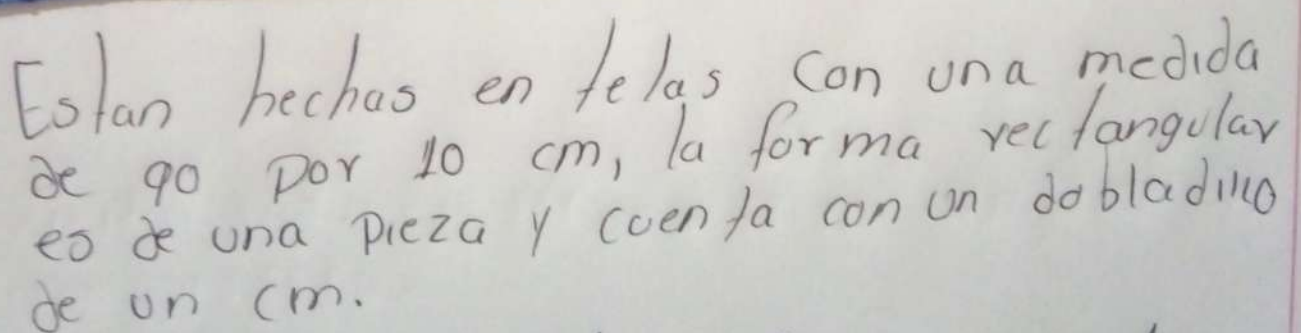 Estan hechas en telas con una medida
de 90 por 10 cm, la forma rectangular
es de una pieza y cuenta con un dobladillo
de un cm.